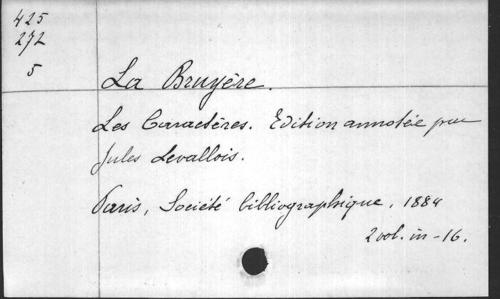 425
272
5
La Bruyère.
Les Caractères. Edition annotée par
Jules Levallois.
Paris, Société bibliographique, 1884
2 vol. in-16.